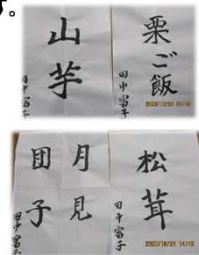 す。
山芋
田中富子
栗ご飯
田中富子
月見
団子
田中富子
松茸
田中富子